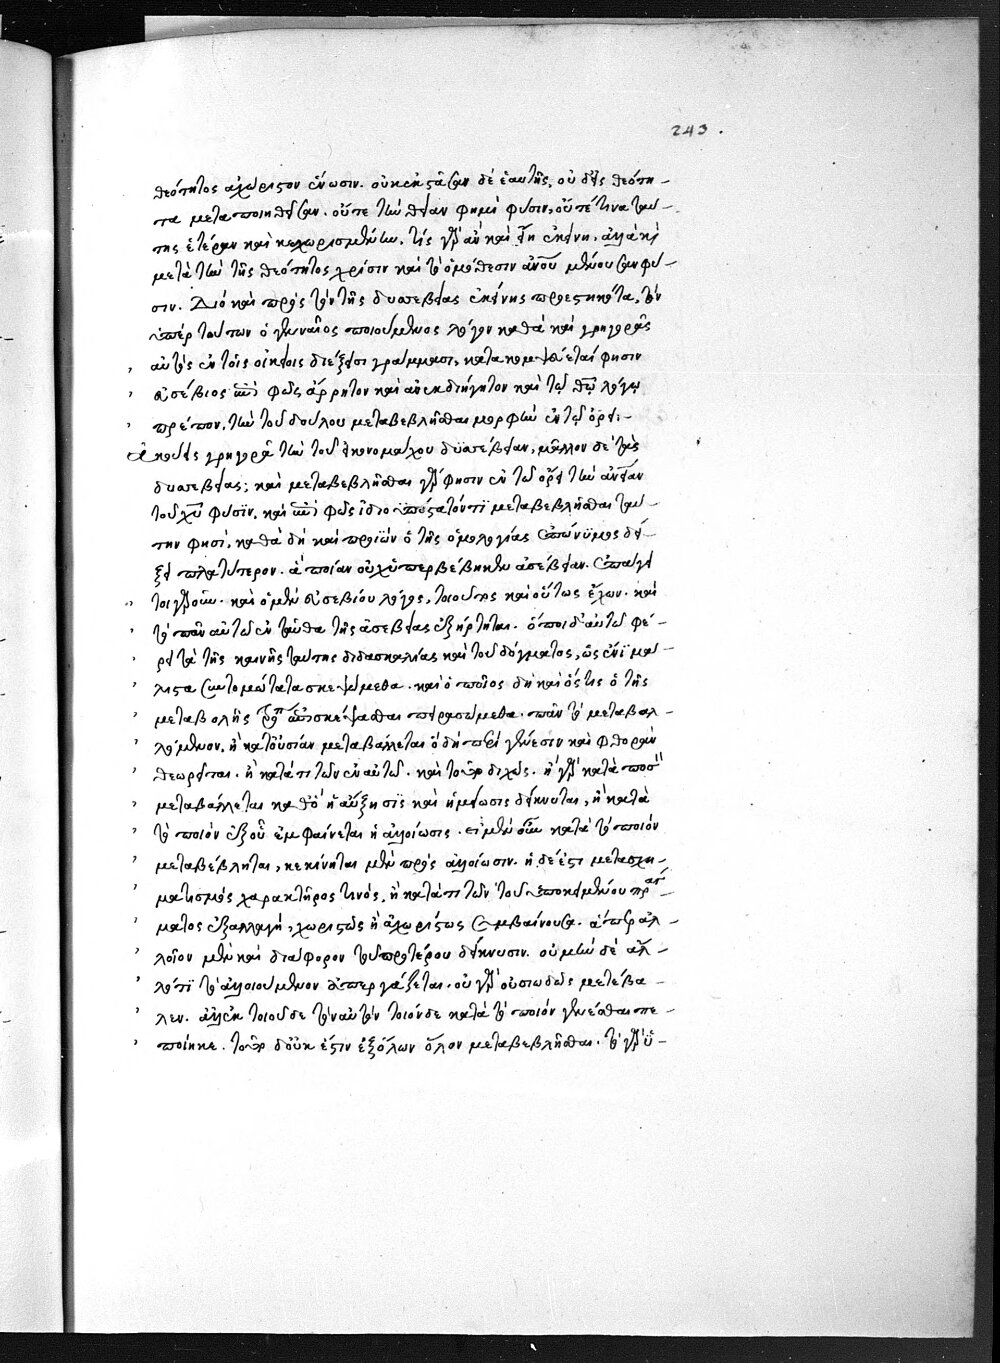 243.
θεότητος ἀχώριστον ἕνωσιν. οὐκ ἐκστᾶσαν δὲ ἑαυτῆς, οὐδ' εἰς θεότη-
τα μεταποιηθεῖσαν. οὔτε τὴν θείαν φημὶ φύσιν, οὔτέ τινα ταύ-
της ἑτέραν καὶ κεχωρισμένην. τίς γὰρ ἂν καὶ εἴη ἐκείνη. ἀλλὰ καὶ
μετὰ τὴν τῆς θεότητος χρίσιν καὶ τὸ ὁμόθεον ἀνου μένουσαν φύ-
σιν. Διὸ καὶ πρὸς τὸν τῆς δυσσεβείας ἐκείνης προεστηκότα, τὸν
ὑπὲρ τούτων ὁ γενναῖος ποιούμενος λόγον καθὰ καὶ γρηγορᾶς
αὐτὸς ἐν τοῖς οἰκείοις διέξεισι γράμμασι, κατακομψεύεταί φησιν
εὐσέβιος ἐπὶ φῶς ἄρρητον καὶ ἀνεκδιήγητον καὶ τῷ θῷ λόγῳ
πρέπον, τὴν τοῦ δούλου μεταβεβλῆσθαι μορφὴν ἐν τῷ ὄρει:
Ἀκούεις γρηγορᾶ τὴν τοῦ εἰκονομάχου δυσσέβειαν, μᾶλλον δὲ τὰς
δυσσεβείας; καὶ μεταβεβλῆσθαι γάρ φησιν ἐν τῷ ὄρει τὴν ἀνείαν
τοῦ χυ φύσιν, καὶ ἐπὶ φῶς ἰδιοϋπόστατόν τι μεταβεβλῆσθαι ταύ-
την φησὶ, καθὰ δὴ καὶ προϊὼν ὁ τῆς ὁμολογίας ἐπώνυμος δεί-
ξει πλατύτερον. ἃ ποίαν οὐχ ὑπερβέβηκεν ἀσέβειαν. ἐπάγει
τοιγαροῦν. καὶ ὁ μὲν εὐσεβίου λόγος, τοιοῦτος καὶ οὕτως ἔχων. καὶ
τὸ πᾶν αὐτῷ ἐνταῦθα τῆς ἀσεβείας ἐξήρτηται. ὅποι δ' αὐτῷ φέ-
ρει τὰ τῆς καινῆς ταύτης διδασκαλίας καὶ τοῦ δόγματος, ὡς ἔνι μά-
λιστα συντομώτατα σκεψώμεθα. καὶ ὁ ποῖος δὴ καὶ ὅστις ὁ τῆς
μεταβολῆς τρόπος ἐπισκέψασθαι πειρασώμεθα. πᾶν τὸ μεταβαλ-
λόμενον, ἢ κατ' οὐσίαν μεταβάλλεται ὃ δὴ περὶ γένεσιν καὶ φθορὰν
θεωρεῖται. ἢ κατά τι τῶν ἐν αὐτῷ. καὶ τοῦτο διχῶς. ἢ γὰρ κατὰ ποσὸν
μεταβάλλεται καθὸ ἡ αὔξησις καὶ ἡ μείωσις δείκνυται, ἢ κατὰ
τὸ ποιὸν ἐξ οὗ ἐμφαίνεται ἡ ἀλλοίωσις. εἰ μὲν οὖν κατὰ τὸ ποιὸν
μεταβέβληται, κεκίνηται μὲν πρὸς ἀλλοίωσιν. ἡ δέ ἐστι μετασχη-
ματισμὸς χαρακτῆρός τινος, ἢ κατά τι τῶν τοῦ ὑποκειμένου πρά-
ματος ἐξαλλαγὴ, χωριστῶς ἢ ἀχωρίστως συμβαίνουσα. ἅπερ ἀλ-
λοῖον μὲν καὶ διάφορον τοῦ προτέρου δείκνυσιν. οὐ μὴν δὲ ἄλ-
λό τι τὸ ἀλλοιούμενον ἀπεργάζεται. οὐ γὰρ οὐσιωδῶς μετέβα-
λεν. ἀλλ' ἐκ τοιοῦδε τὸν αὐτὸν τοιόνδε κατὰ τὸ ποιὸν γενέσθαι πε-
ποίηκε. τοῦτο δ' οὐκ ἔστιν ἐξ ὅλων ὅλον μεταβεβλῆσθαι. τὸ γὰρ ὕ-